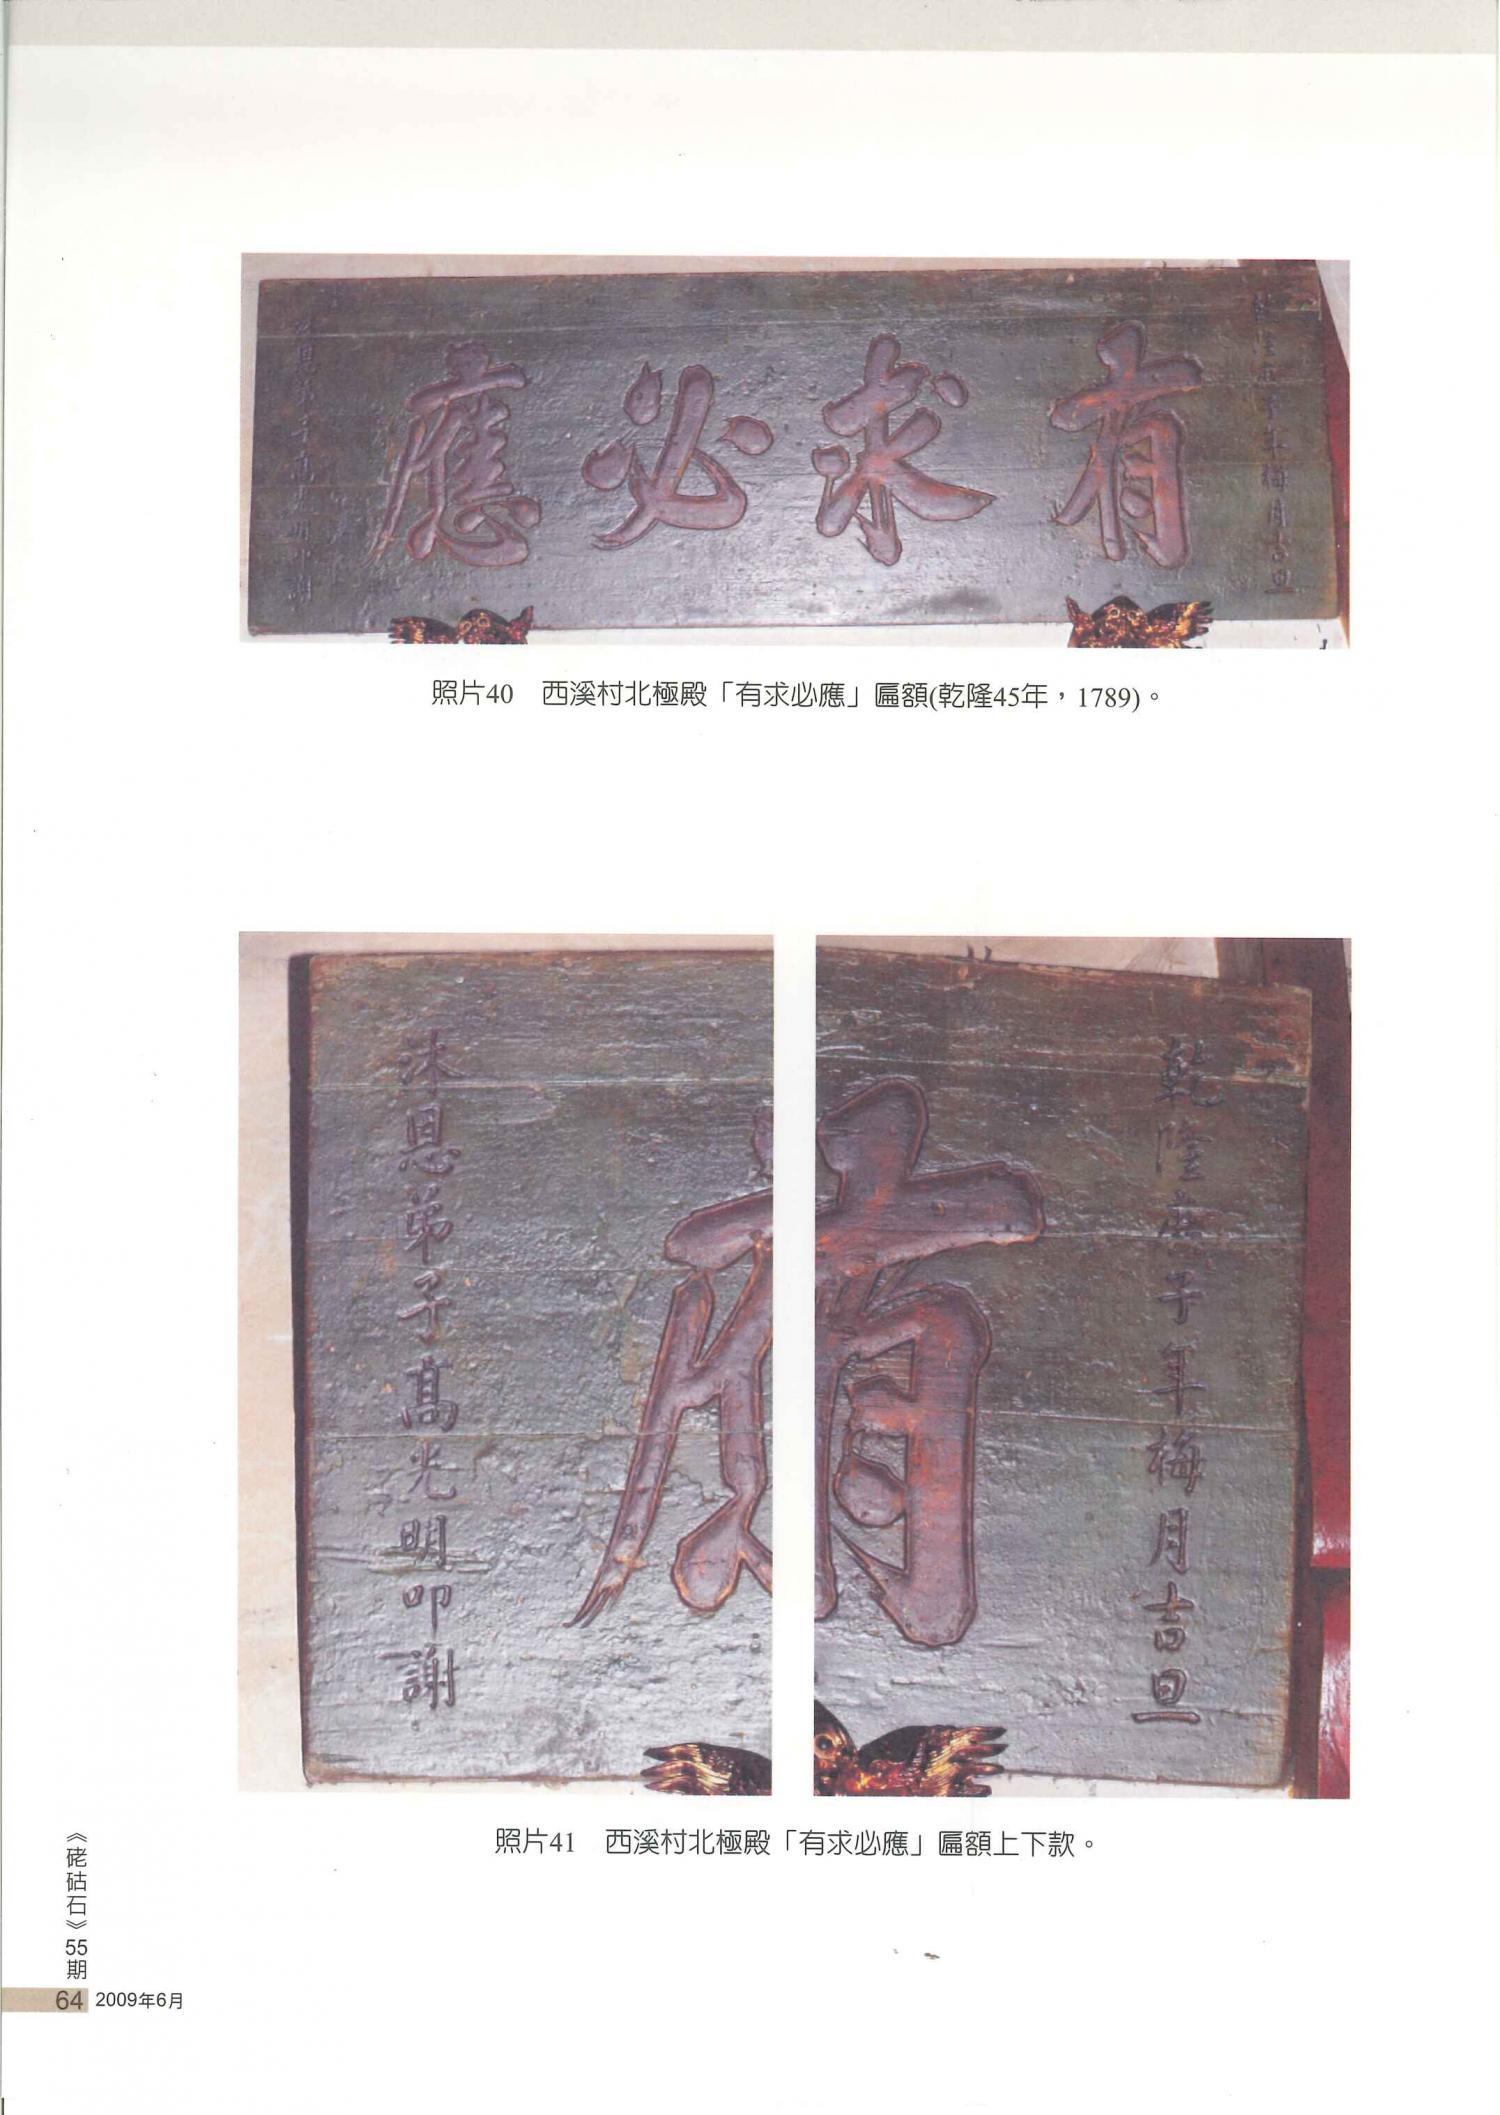 乾隆庚子年梅月吉旦
有求必應
沐恩弟子高光明叩謝
照片40 西溪村北極殿「有求必應」匾額(乾隆45年，1789)。
乾隆庚子年梅月吉旦
有
應
沐恩弟子高光明叩謝
照片41 西溪村北極殿「有求必應」匾額上下款。
《硓𥑮石》55期
64 2009年6月